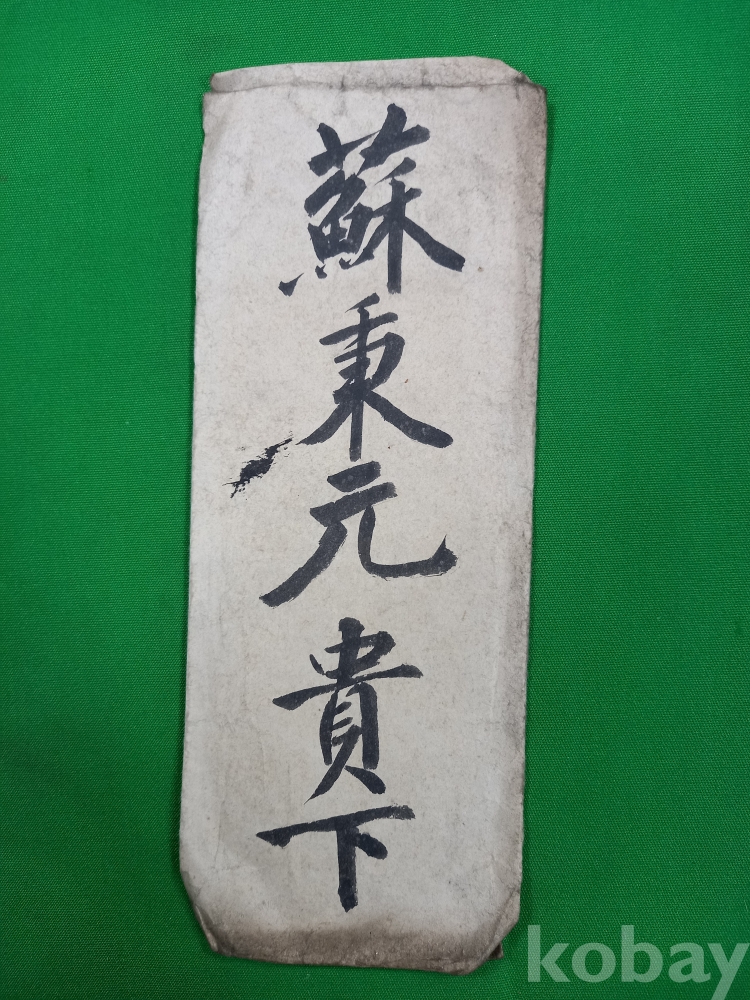 蘇秉元貴下
kobay